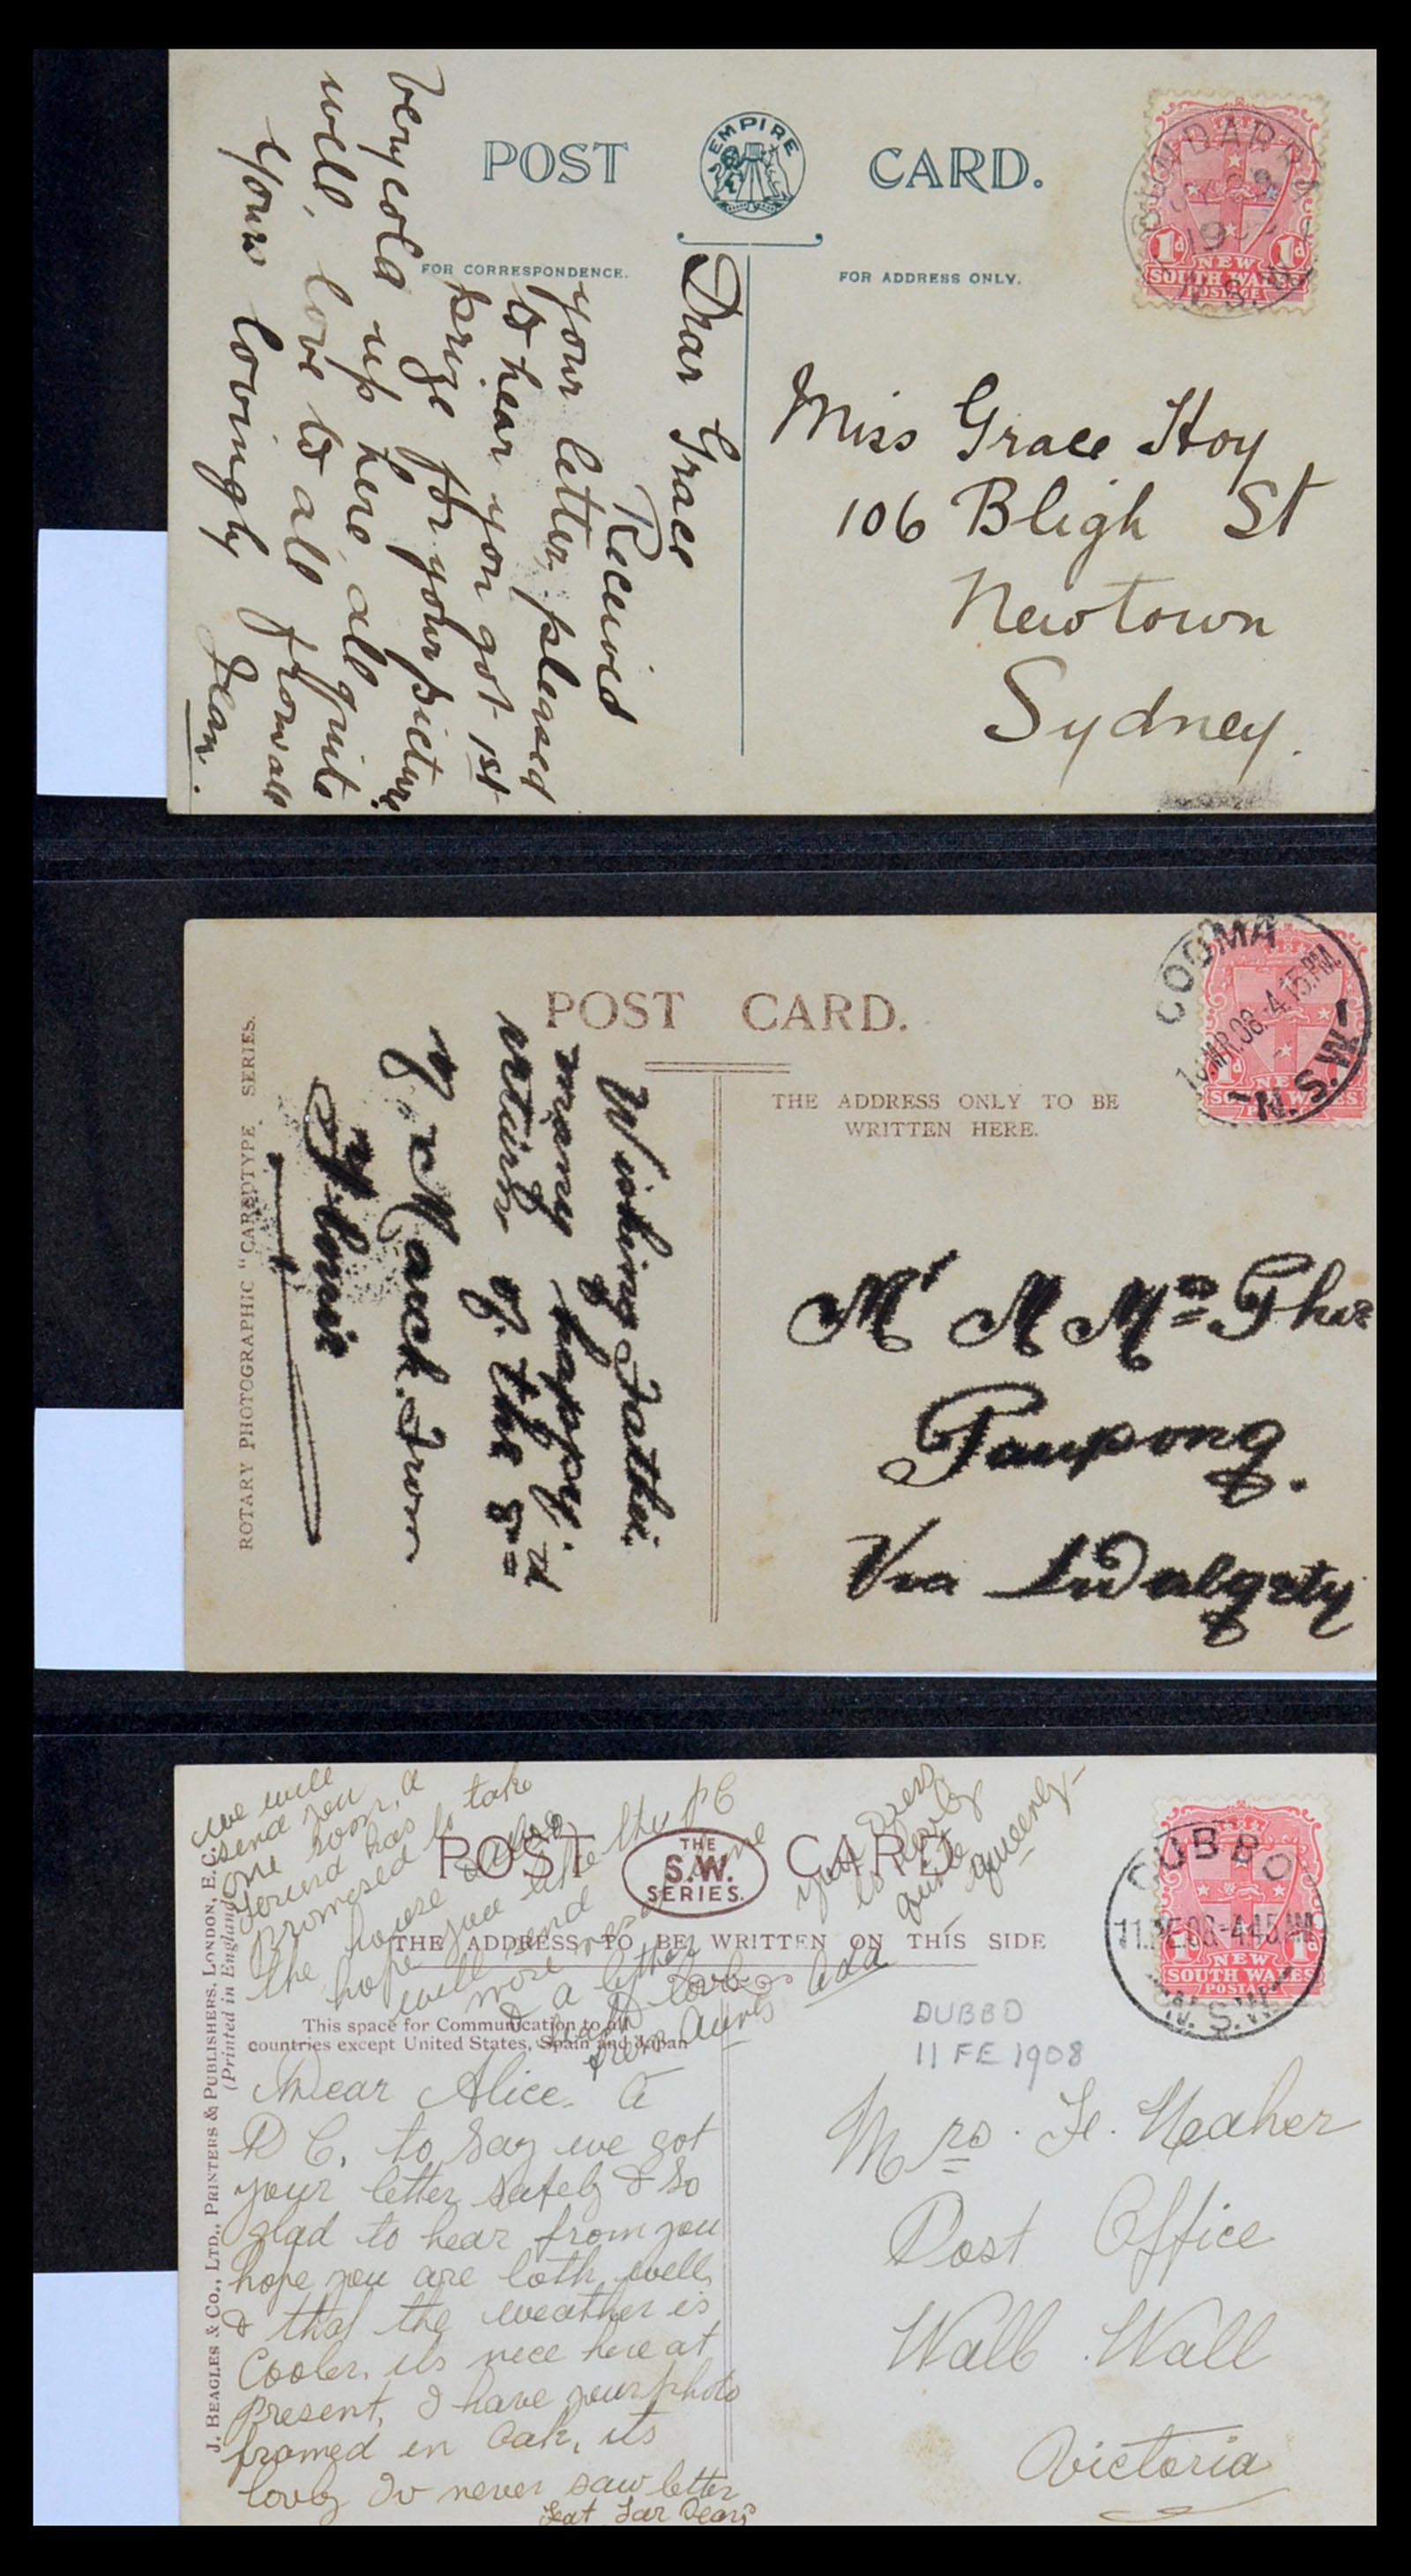 POST CARD.
EMPIRE
FOR CORRESPONDENCE.
FOR ADDRESS ONLY.
BUNDARRA
N.S.W
1d 1d
NEW
SOUTH WALES
POSTAGE
Dear Grace
Received
your letter pleased
to hear you got 1st
prize for your picture
very cold up here all quite
well, love to all from all
Yours lovingly
Jean.
Miss Grace Hoy
106 Bligh St
Newtown
Sydney.
POST CARD.
COOMA
MR.08.-4.15PM.
-N.S.W-
1d
NEW
SOUTH WALES
THE ADDRESS ONLY TO BE
WRITTEN HERE.
ROTARY PHOTOGRAPHIC "CARBOTYPE" SERIES.
Wishing Father
many happy
returns of the 8
of March. From
Florie
Mr M Mc
Paupong.
Via Dalgety
POST CARD
THE
S.W.
SERIES.
THE ADDRESS TO BE WRITTEN ON THIS SIDE
This space for Communication to all
countries except United States, Spain and Japan
J. BEAGLES & CO., LTD., PRINTERS & PUBLISHERS, LONDON, E.C.
(Printed in England)
DUBBO
11.FE.08-4.45
N.S.W
1d
NEW
SOUTH WALES
POSTAGE
DUBBO
11 FE 1908
we will
send you
one soon, a
friend has
promised to take
the house
hope you like this PC
will send some
more next
& a letter
love
from Aunt Ada
your
is
quite
queenly
Dear Alice. A
P C. to say we got
your letter safely & so
glad to hear from you
hope you are both well
& that the weather is
cooler, its nice here at
present, I have your photo
framed in Oak, its
lovely Iv never saw better
Mrs. F. Meaher
Post Office
Wall Wall
Victoria